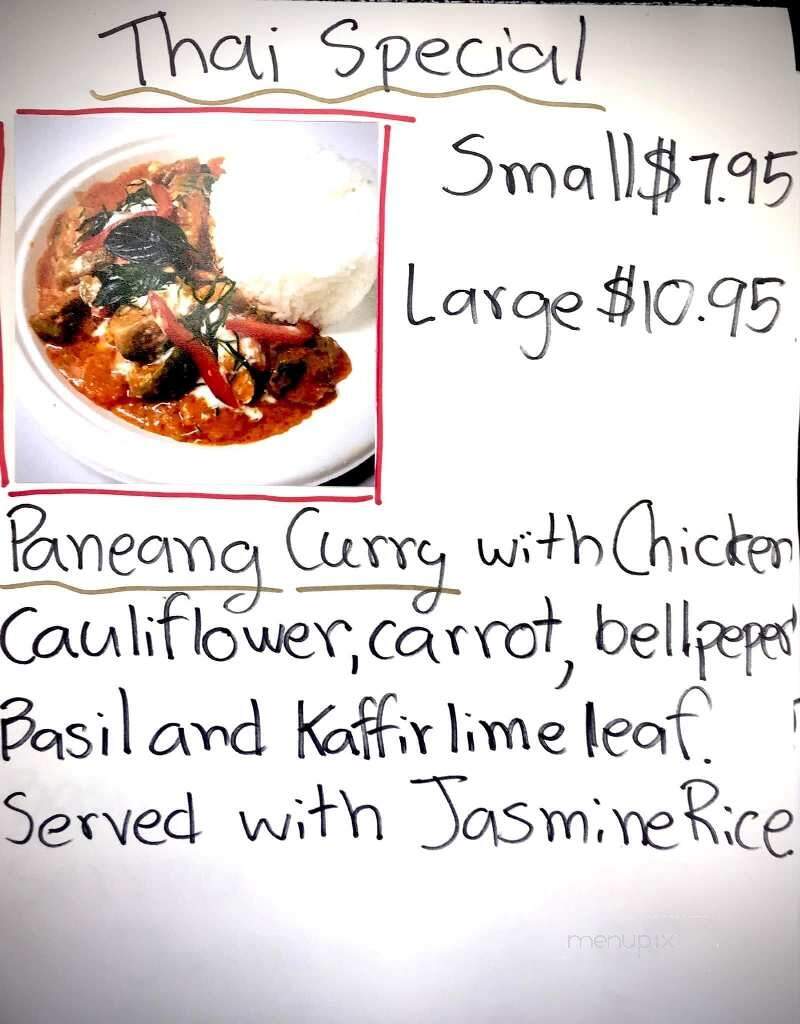 Thai Special
Small $7.95
Large $10.95
Paneang Curry with Chicken
Cauliflower, carrot, bellpeper
Basil and Kaffir lime leaf.
Served with Jasmine Rice
menupix